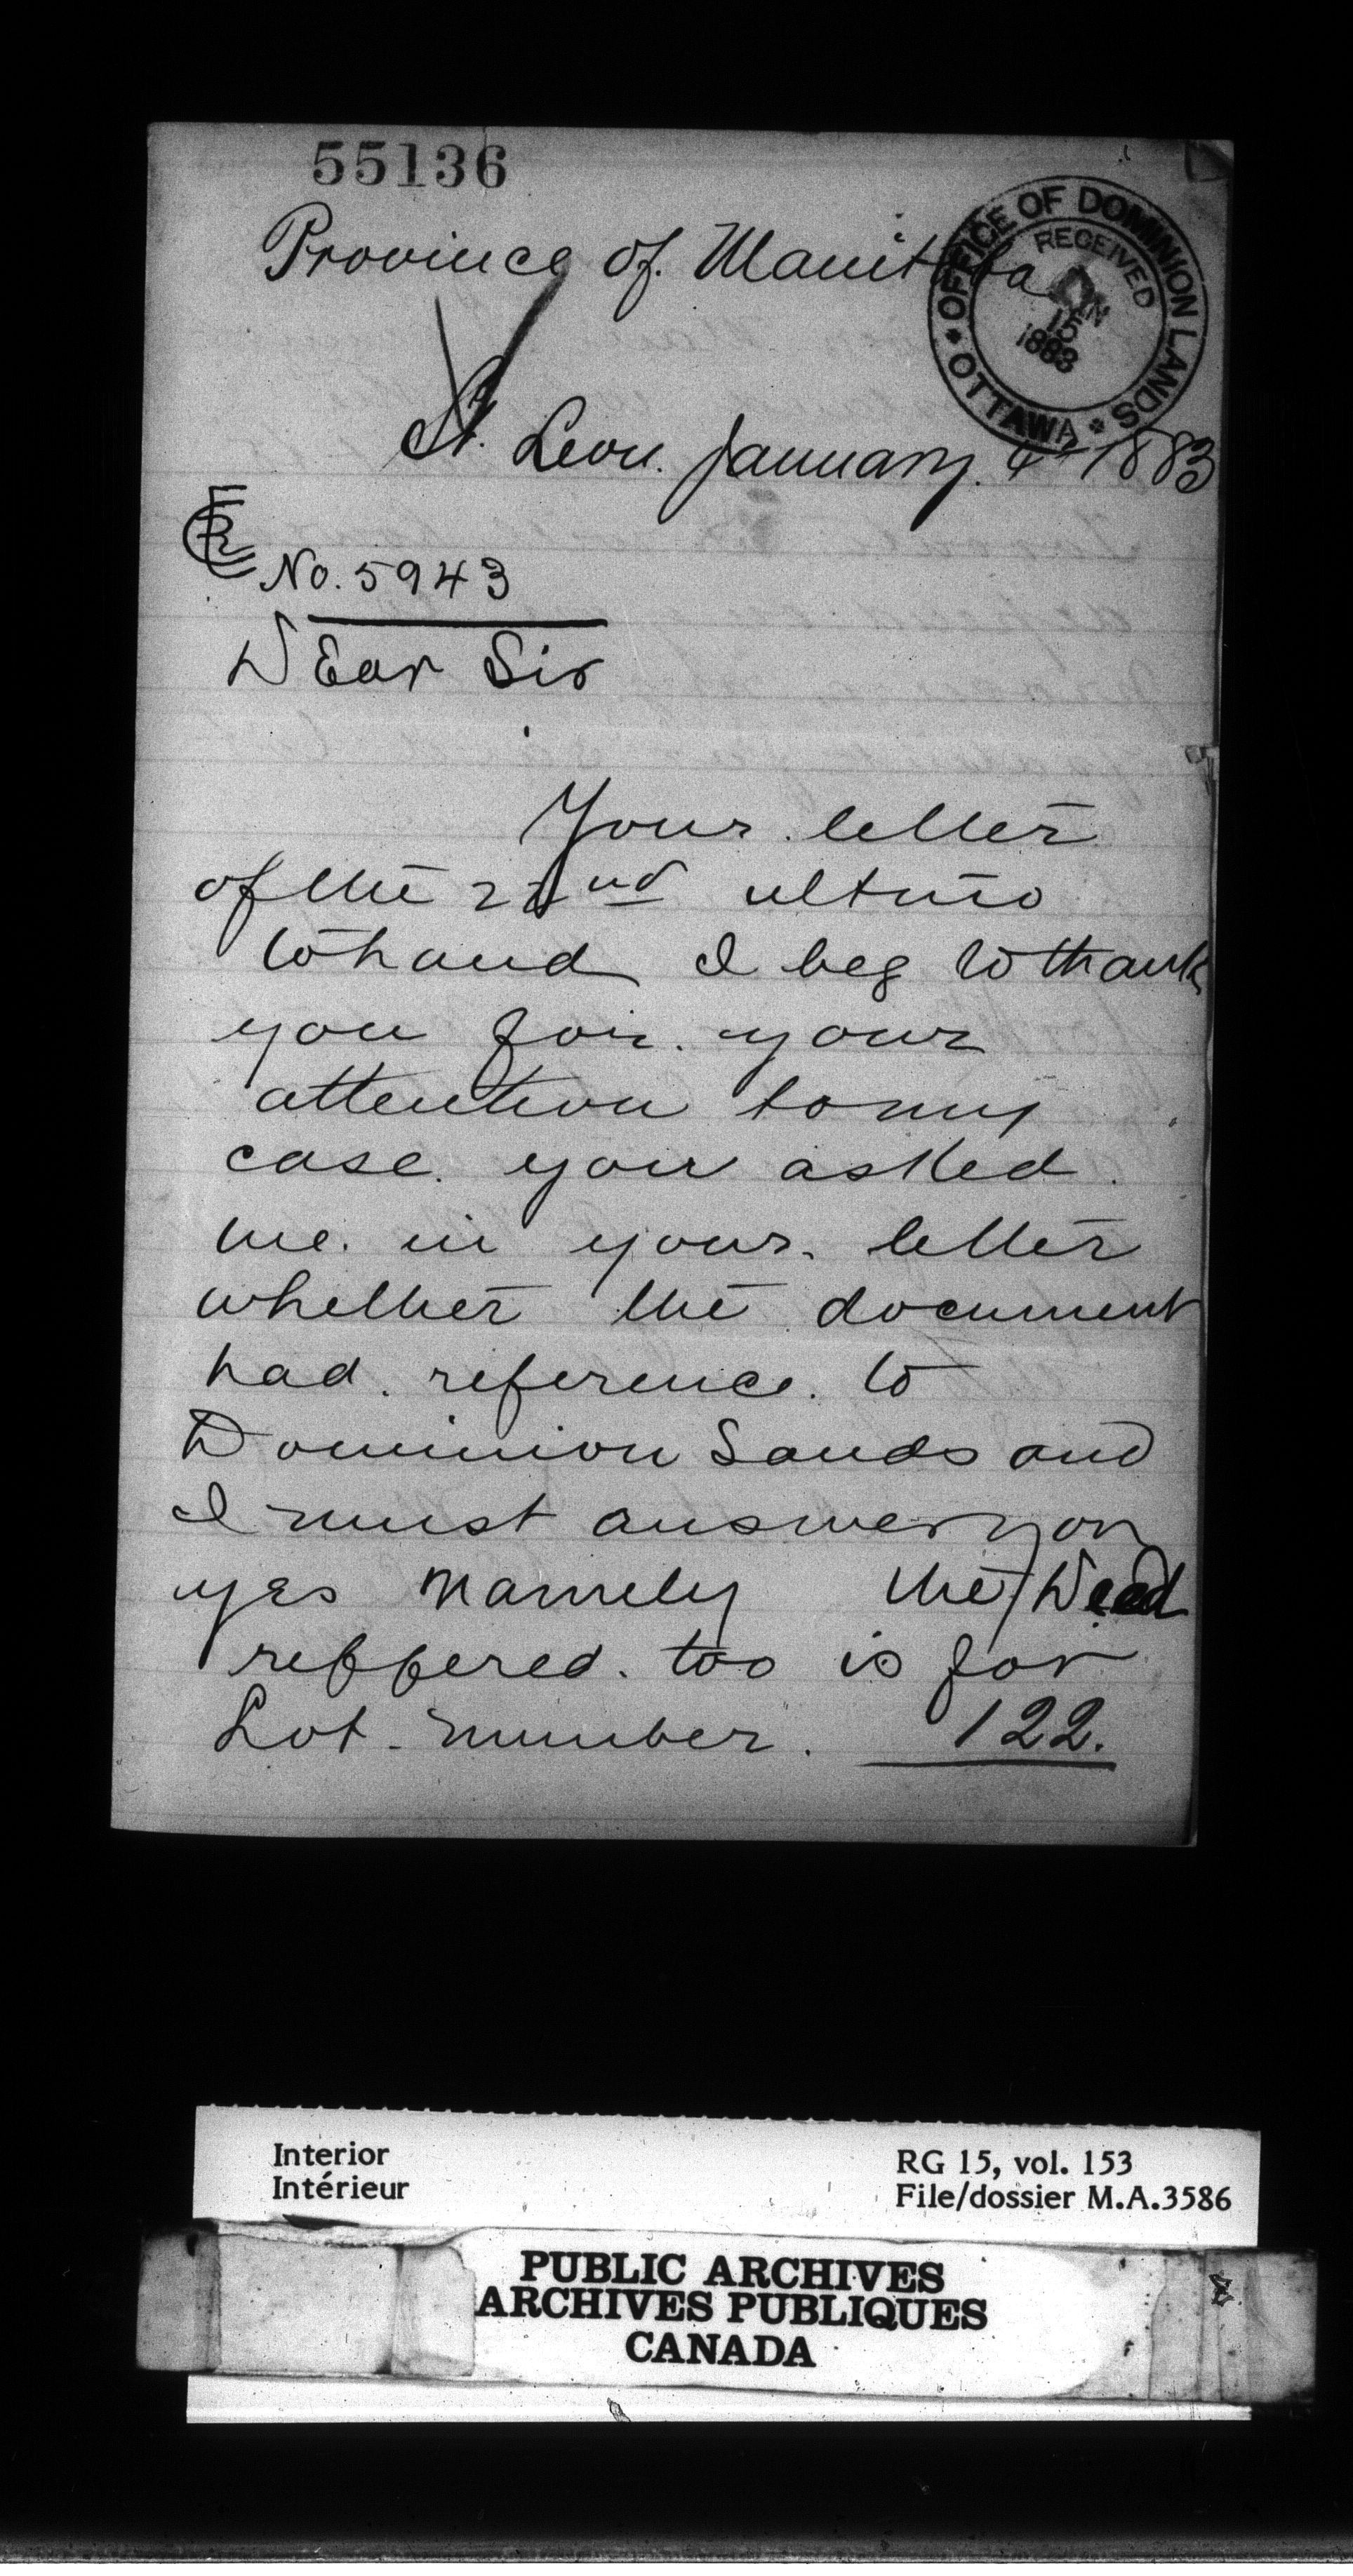 55136
Province of. Manitoba
OFFICE OF DOMINION LANDS
OTTAWA
RECEIVED
JAN
15
1883
St. Leon. January. 4th 1883
No. 5943
DEar Sir
Your letter
of the 22nd ultmo
to hand I beg to thank
you for. your
attention to my
case. you asked
me. in your. letter
whether the document
had. reference. to
Dominion Lands and
I must answer you
yEs Namely the Deed
reffered. too is for
Lot. number. 122.
Interior
Intérieur
RG 15, vol. 153
File/dossier M.A.3586
PUBLIC ARCHIVES
ARCHIVES PUBLIQUES
CANADA